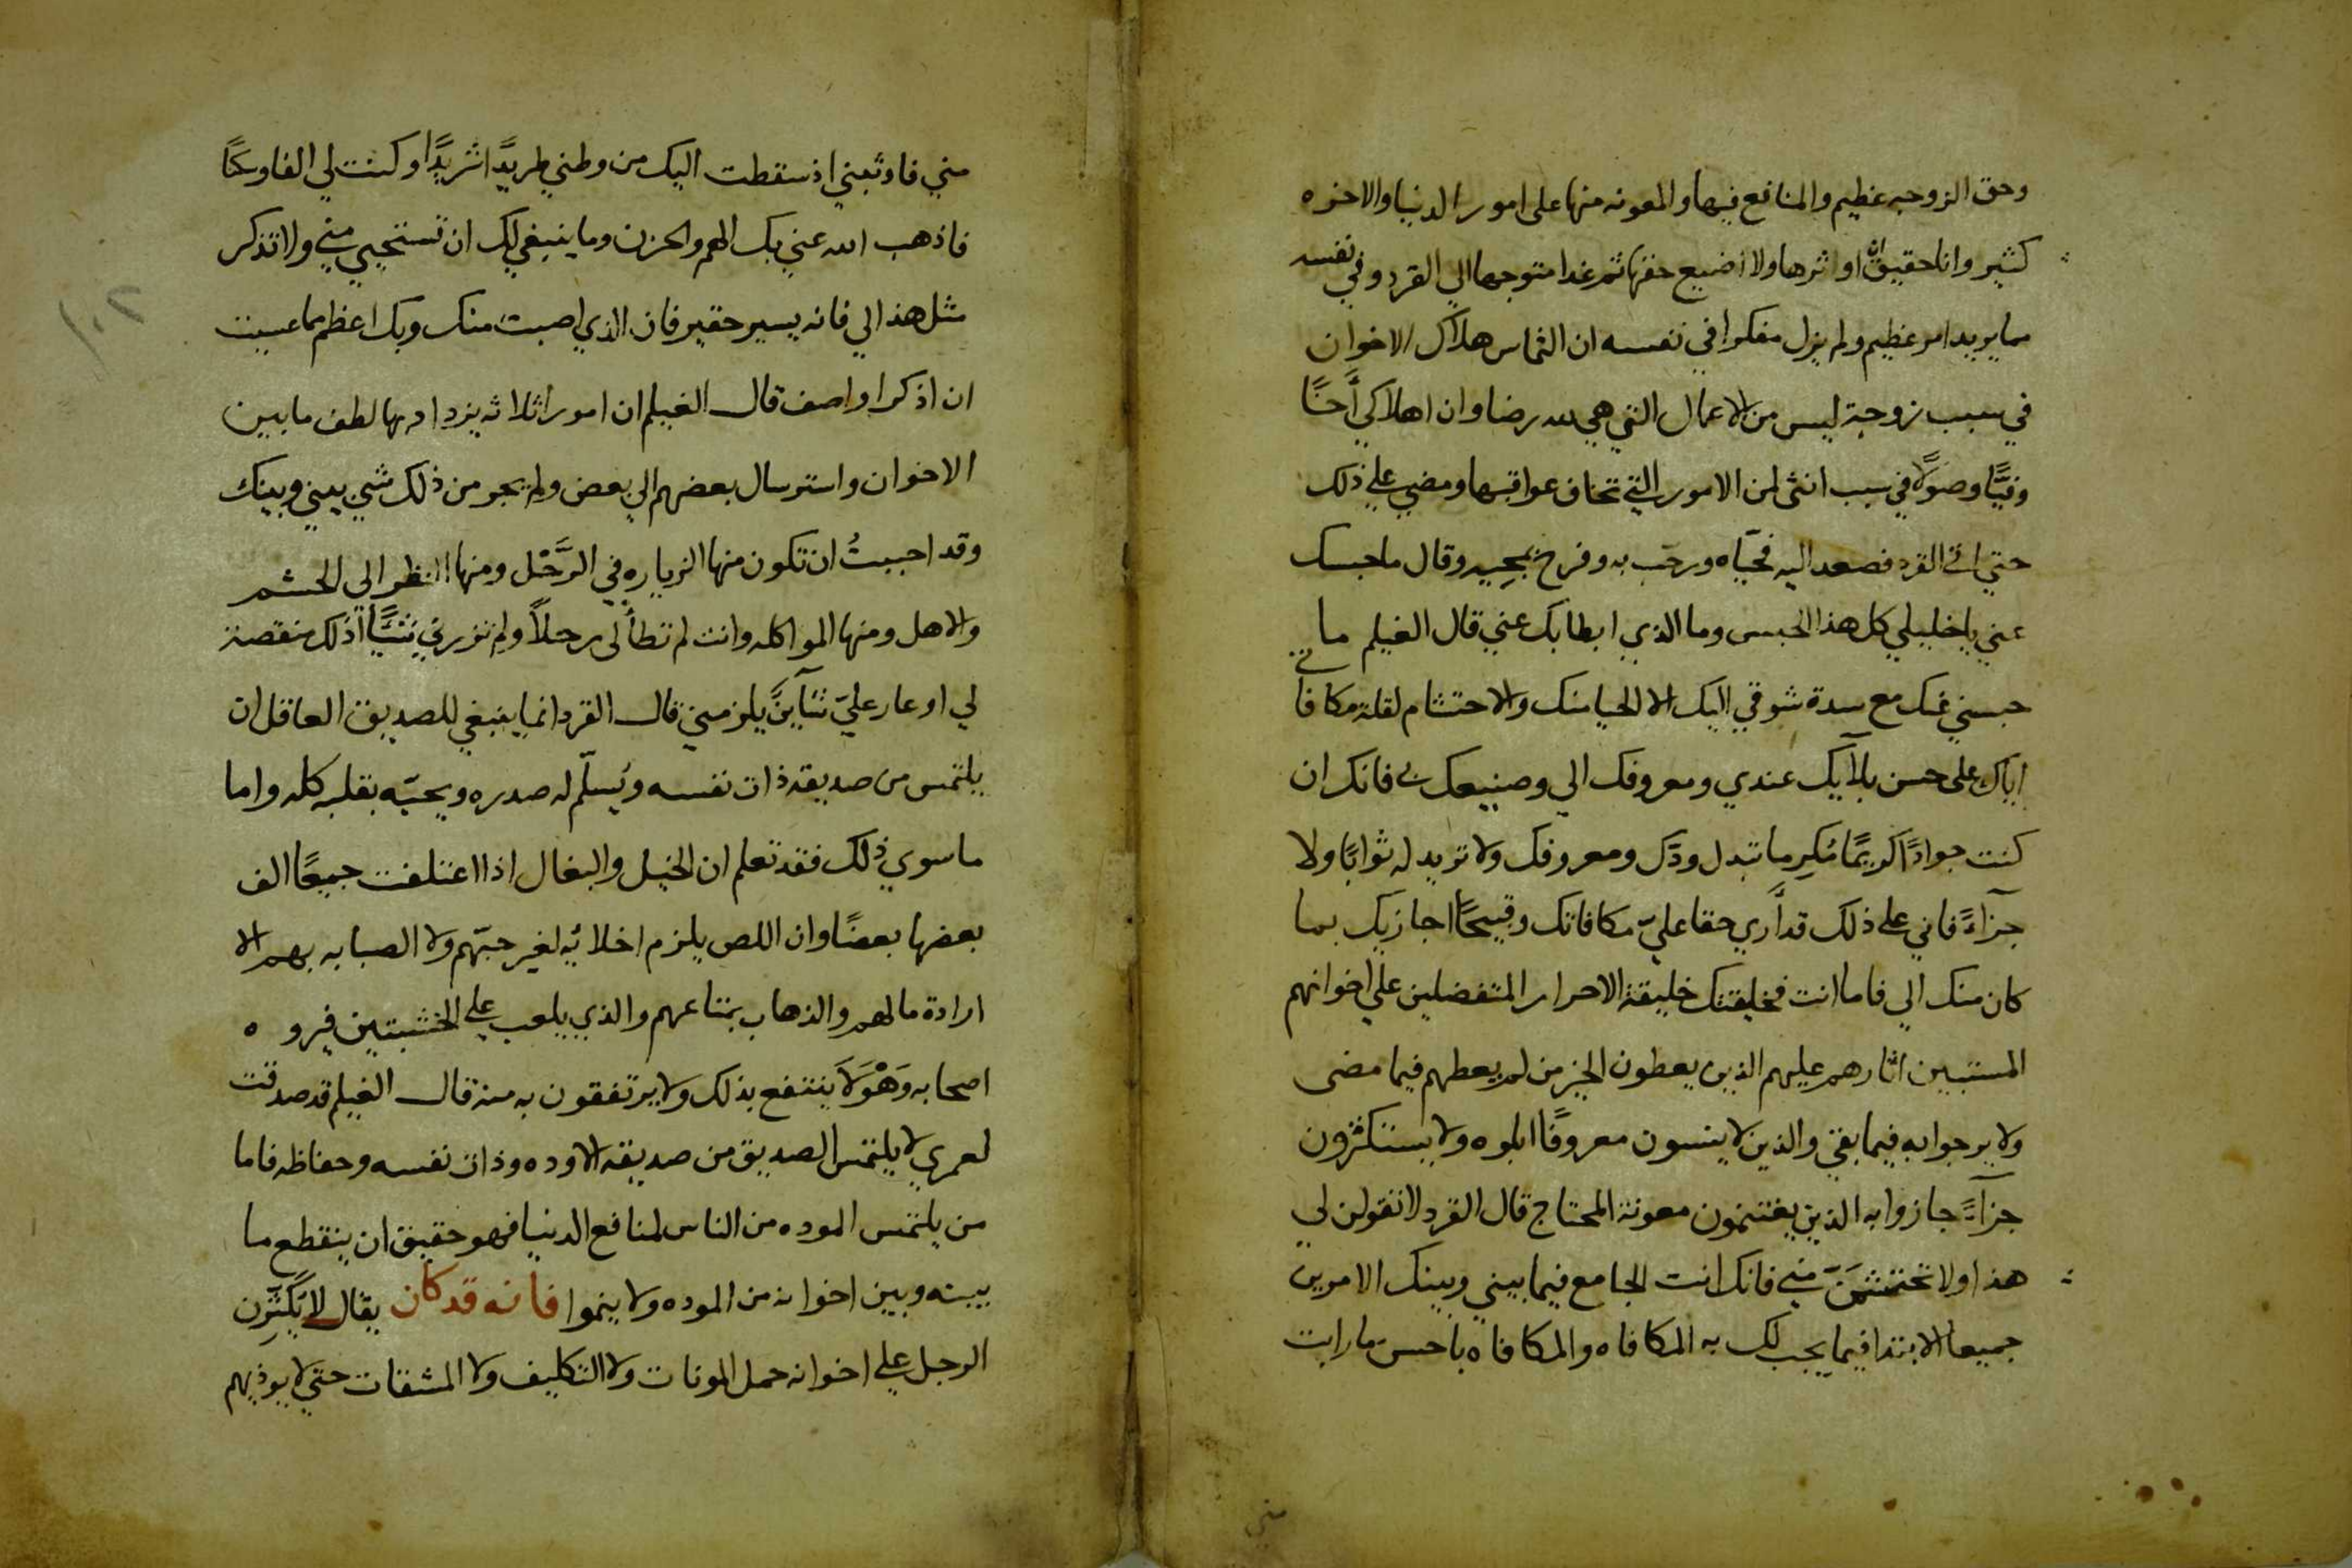 وحق الزوجه عظيم والمنافع فيها والمعونه منها على امور الدنيا والاخره
كثير وانا حقيق ان اوثرها ولا اضيع حقها ثم غدا متوجها الي القرد وفي نفسه
مما يريد امر عظيم ولم يزل مفكرا في نفسه ان التماس هلاك الاخوان
في سبب زوجة ليس من الاعمال التي هي لله رضا وان اهلاكي أخًا
وفيًّا وصولًا في سبب انثى لمن الامور التي تخاف عواقبها ومضي علي ذلك
حتي اتي القرد فصعد اليه فحيّاه ورحّب به وفرح بمجيه وقال ما حبسك
عني يا خليلي كل هذا الحبس وما الذي ابطا بك عني قال الغيلم ما
حبسني عنك مع سدة شوقي اليك الا الحيا منك والاحتشام لقلة مكافاتي
اياك على حسن بلآيك عندي ومعروفك الي وصنيعك بي فانك ان
كنت جوادًا كريمًا مُكرِما تبدل ودّك ومعروفك ولا تريد له ثوابًا ولا
جزآءً فاني علي ذلك قد أري حقا عليّ مكافاتك وقبيحًا اجازيك بما
كان منك الي فاما انت فخليقتك خليقة الاحرار المتفضلين علي اخوانهم
المستبين اثارهم عليهم الذين يعطون الخير من لم يعطهم فيما مضى
ولا يرجوا به فيما بقي والذين لا ينسون معروفًا ابلوه ولا يستكثرون
جزآءً جازوا به الذين يغتنمون معونة المحتاج قال القرد لا تقولن لي
هذا ولا تحتشمَنّ مني فانك انت الجامع فيما بيني وبينك الامرين
جميعا الابتدا فيما يجب لك به المكافاه والمكافاه باحسن ما رايت
مني
مني فاوتعني اذ سقطت اليك من وطني طريدًا شريدًا وكنت لي الفا وسكنًا
فاذهب الله عني بك الهم والحزن وما ينبغي لك ان تستحيي مني ولا تذكر
مثل هذا لي فانه يسير حقير فان الذي اصبت منك وبك اعظم مما عسيت
ان اذكر او اصف قال الغيلم ان امورا ثلاثه يزداد بها لطف ما بين
الاخوان واسترسال بعضهم الي بعض ولم يجر من ذلك شي بيني وبينك
وقد احببتُ ان تكون منها الزياره في الرَّحْل ومنها النظر الى الحشم
والاهل ومنها المواكله وانت لم تطأ لى رحلاً ولم تزرني شيًّا ذلك منقصة
لي او عار عليّ شآينً يلزمني قال القرد انما ينبغي للصديق العاقل ان
يلتمس من صديقه ذات نفسه ويُسلّم له صدره ويحبّه بقلبه كله واما
ما سوي ذلك فقد تعلم ان الخيل والبغال اذا اعتلفت جميعًا الف
بعضها بعضًا وان اللص يلزم اخلائه لغير حبّهم ولا الصبابه بهم الا
ارادة مالهم والذهاب بمتاعهم والذي يلعب علي الخشبتين فيروه
اصحابه وَهْوَ لَا ينتفع بذلك ولا يرتفقون به منه قال الغيلم قد صدقت
لعمري لا يلتمس الصديق من صديقه الا وده وذات نفسه وحفاظه فاما
من يلتمس الموده من الناس لمنافع الدنيا فهو حقيق ان ينقطع ما
بينه وبين اخوانه من الموده ولا ينموا فانه قد كان يقال لا يُكْثِرن
الرجل علي اخوانه حمل المونات ولا التكاليف ولا المشقات حتي لا يوذيهم
١٠٢